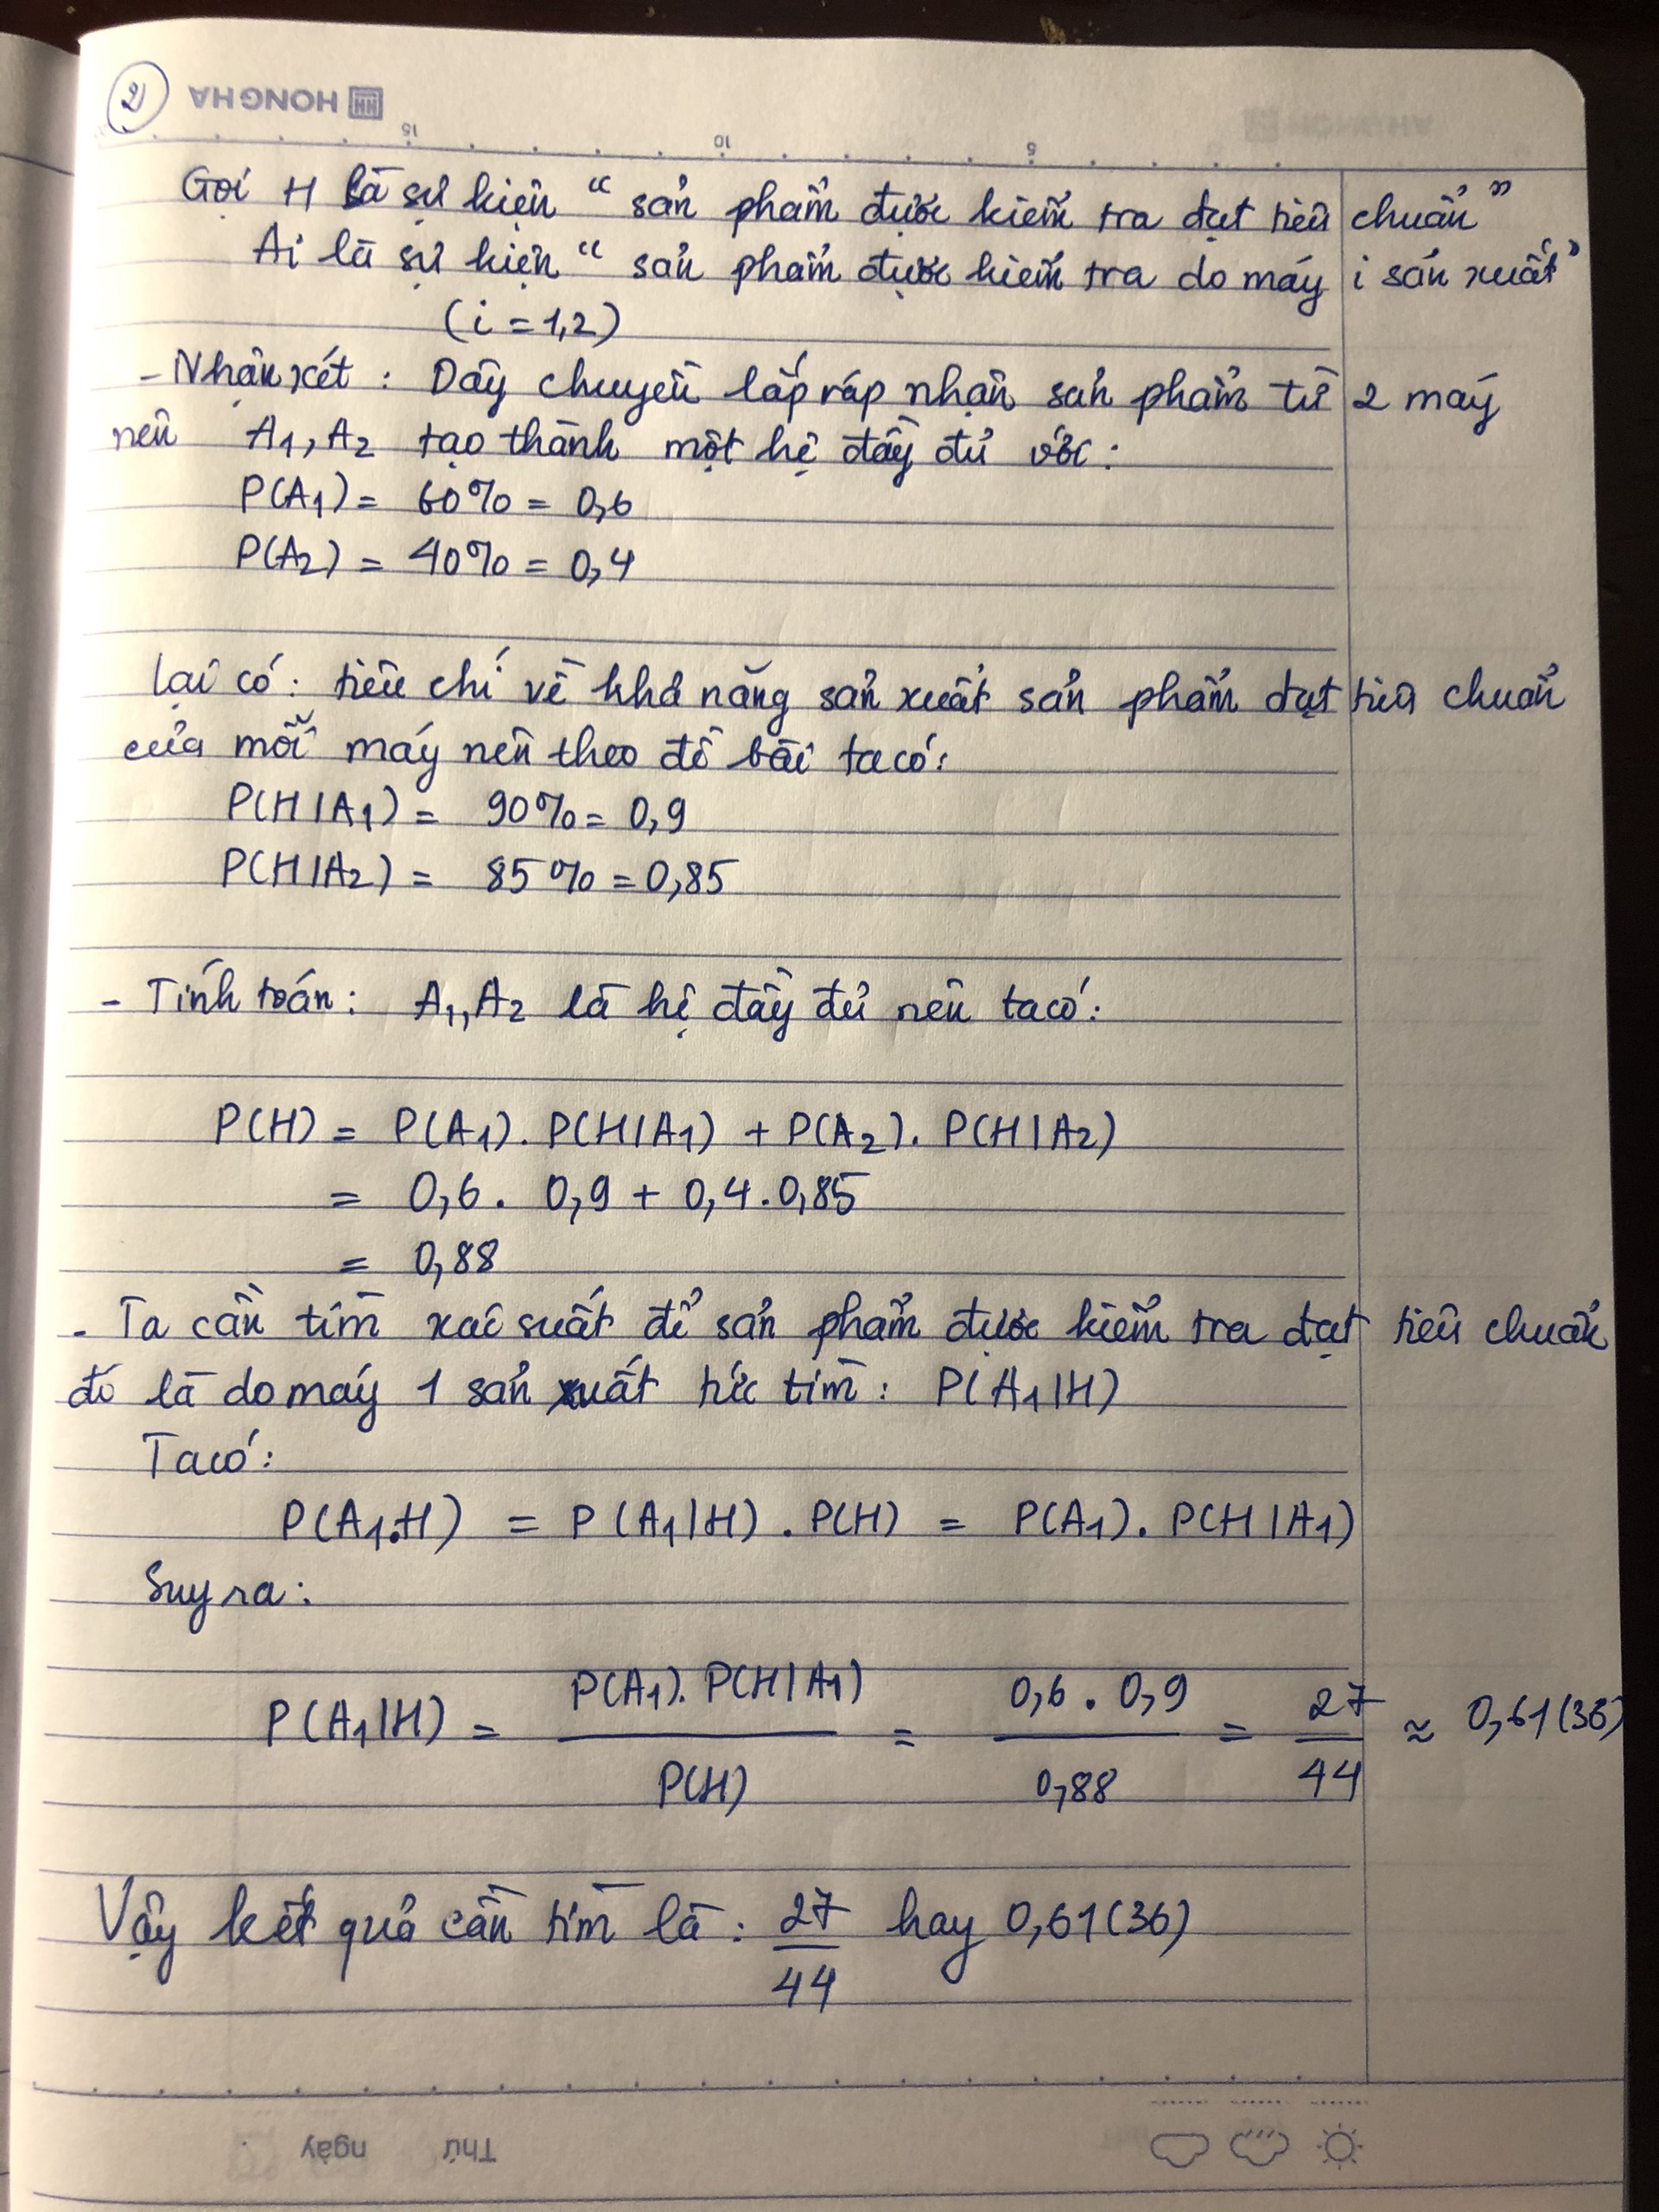 2)
HONG HA
15 10 5
Gọi H là sự kiện “ sản phẩm được kiểm tra đạt tiêu chuẩn ”
Ai là sự kiện “ sản phẩm được kiểm tra do máy i sản xuất ”
(i = 1,2)
- Nhận xét : Dây chuyền lắp ráp nhận sản phẩm từ 2 máy
nên A₁, A₂ tạo thành một hệ đầy đủ với :
P(A₁) = 60% = 0,6
P(A₂) = 40% = 0,4
Lại có : tiêu chí về khả năng sản xuất sản phẩm đạt tiêu chuẩn
của mỗi máy nên theo đề bài ta có :
P(H|A₁) = 90% = 0,9
P(H|A₂) = 85% = 0,85
- Tính toán : A₁, A₂ là hệ đầy đủ nên ta có :
P(H) = P(A₁) . P(H|A₁) + P(A₂) . P(H|A₂)
= 0,6 . 0,9 + 0,4 . 0,85
= 0,88
- Ta cần tìm xác suất để sản phẩm được kiểm tra đạt tiêu chuẩn
đó là do máy 1 sản xuất tức tìm : P(A₁|H)
Ta có :
P(A₁.H) = P(A₁|H) . P(H) = P(A₁) . P(H|A₁)
Suy ra :
P(A₁|H) = P(A₁). P(H|A₁) / P(H) = 0,6 . 0,9 / 0,88 = 27 / 44 ≈ 0,61(36)
Vậy kết quả cần tìm là : 27 / 44 hay 0,61(36)
Thứ ngày